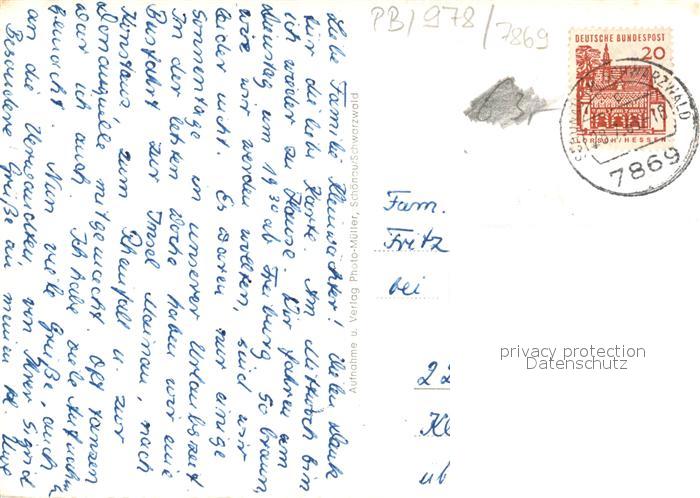 PB/978/7869
DEUTSCHE BUNDESPOST
20
LORSCH/HESSEN
SCHWARZWALD
7869
Liebe Familie Kleinwächter! Vielen Dank
für die liebe Karte. Am Mittwoch bin
ich wieder zu Hause. Wir fahren am
Dienstag um 19 30 ab Freiburg. So braun,
wie wir werden wollten, sind wir
leider nicht. Es waren nur einige
Sonnentage in unserer Urlaubszeit.
In der letzten Woche haben wir eine
Busfahrt zur Insel Mainau, nach
Konstanz, zum Rheinfall u. zur
Donauquelle mitgemacht. Oft tanzen
war ich auch. Ich habe viele Aufnahmen
gemacht. Nun viele Grüße, auch
an die Verwandten, von Ihrer Sigrid
Besondere Grüße an meinen kl.
Aufnahme u. Verlag Photo-Müller, Schönau/Schwarzwald
Fam.
Fritz
bei
22
Kl
üb
privacy protection
Datenschutz